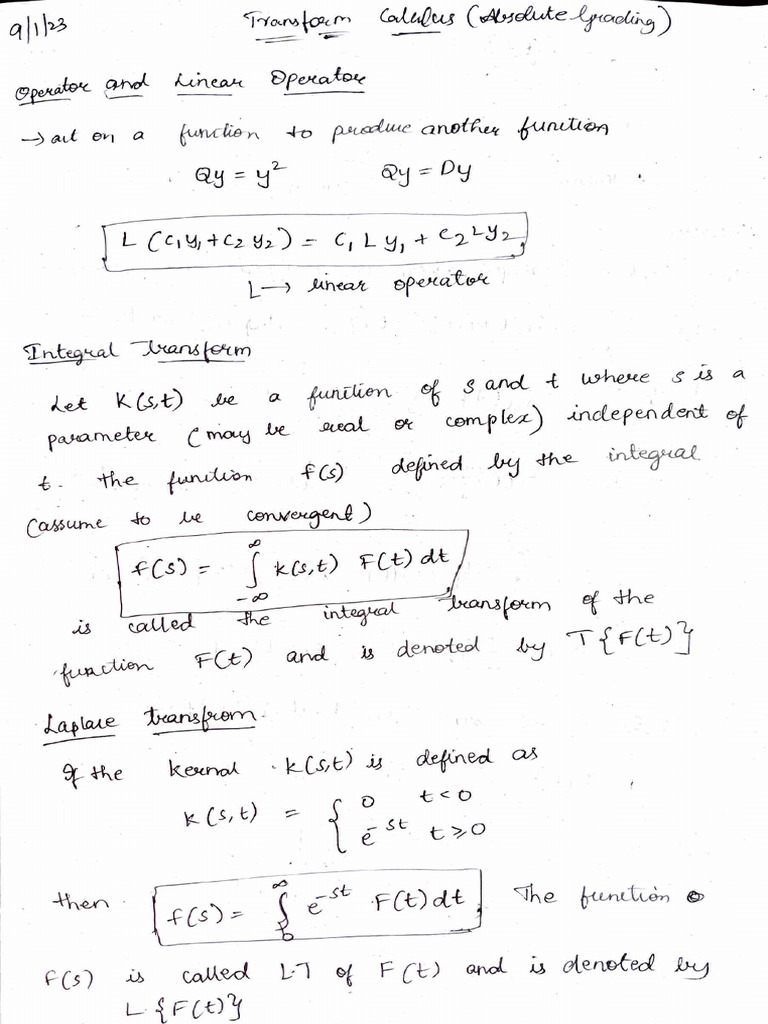 9/1/23 Transform Calculus (Absolute Grading)
Operator and Linear Operator
→ act on a function to produce another function
Qy = y² Qy = Dy
L (c₁y₁ + c₂ y₂) = c₁ L y₁ + c₂ L y₂
L → linear operator
Integral Transform
Let K(s,t) be a function of s and t where s is a
parameter (may be real or complex) independent of
t. the function f(s) defined by the integral
(assume to be convergent)
f(s) = ∫_{-∞}^{∞} k(s,t) F(t) dt
is called the integral transform of the
function F(t) and is denoted by T{F(t)}
Laplace transfrom.
If the kernal k(s,t) is defined as
k(s,t) = { 0 t<0
e^{-st} t≥0
then f(s) = ∫_{0}^{∞} e^{-st} F(t) dt The function
f(s) is called L.T of F(t) and is denoted by
L {F(t)}